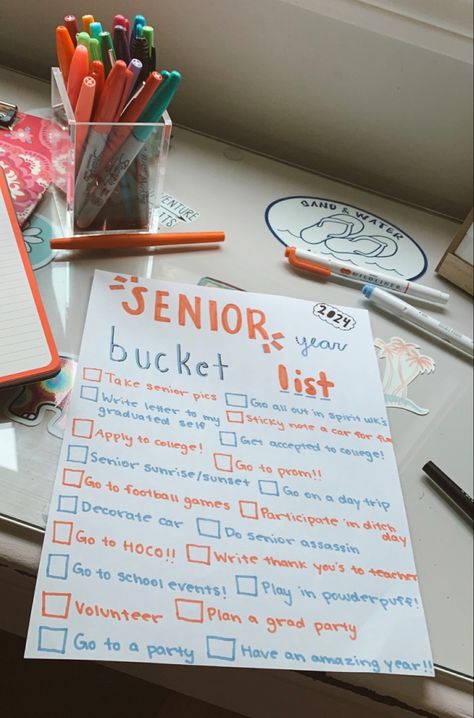 SENIOR
2024
year
bucket list
Take senior pics
Go all out in spirit wk's
Write letter to my graduated self
Sticky note a car for fun
Apply to college!
Get accepted to college!
Senior sunrise/sunset
Go to prom!!
Go on a day trip
Go to football games
Participate in ditch day
Decorate car
Do senior assassin
Go to HOCO!!
Write thank you's to teacher
Go to school events!
Play in powderpuff!
Volunteer
Plan a grad party
Go to a party
Have an amazing year!!
SAND & WATER